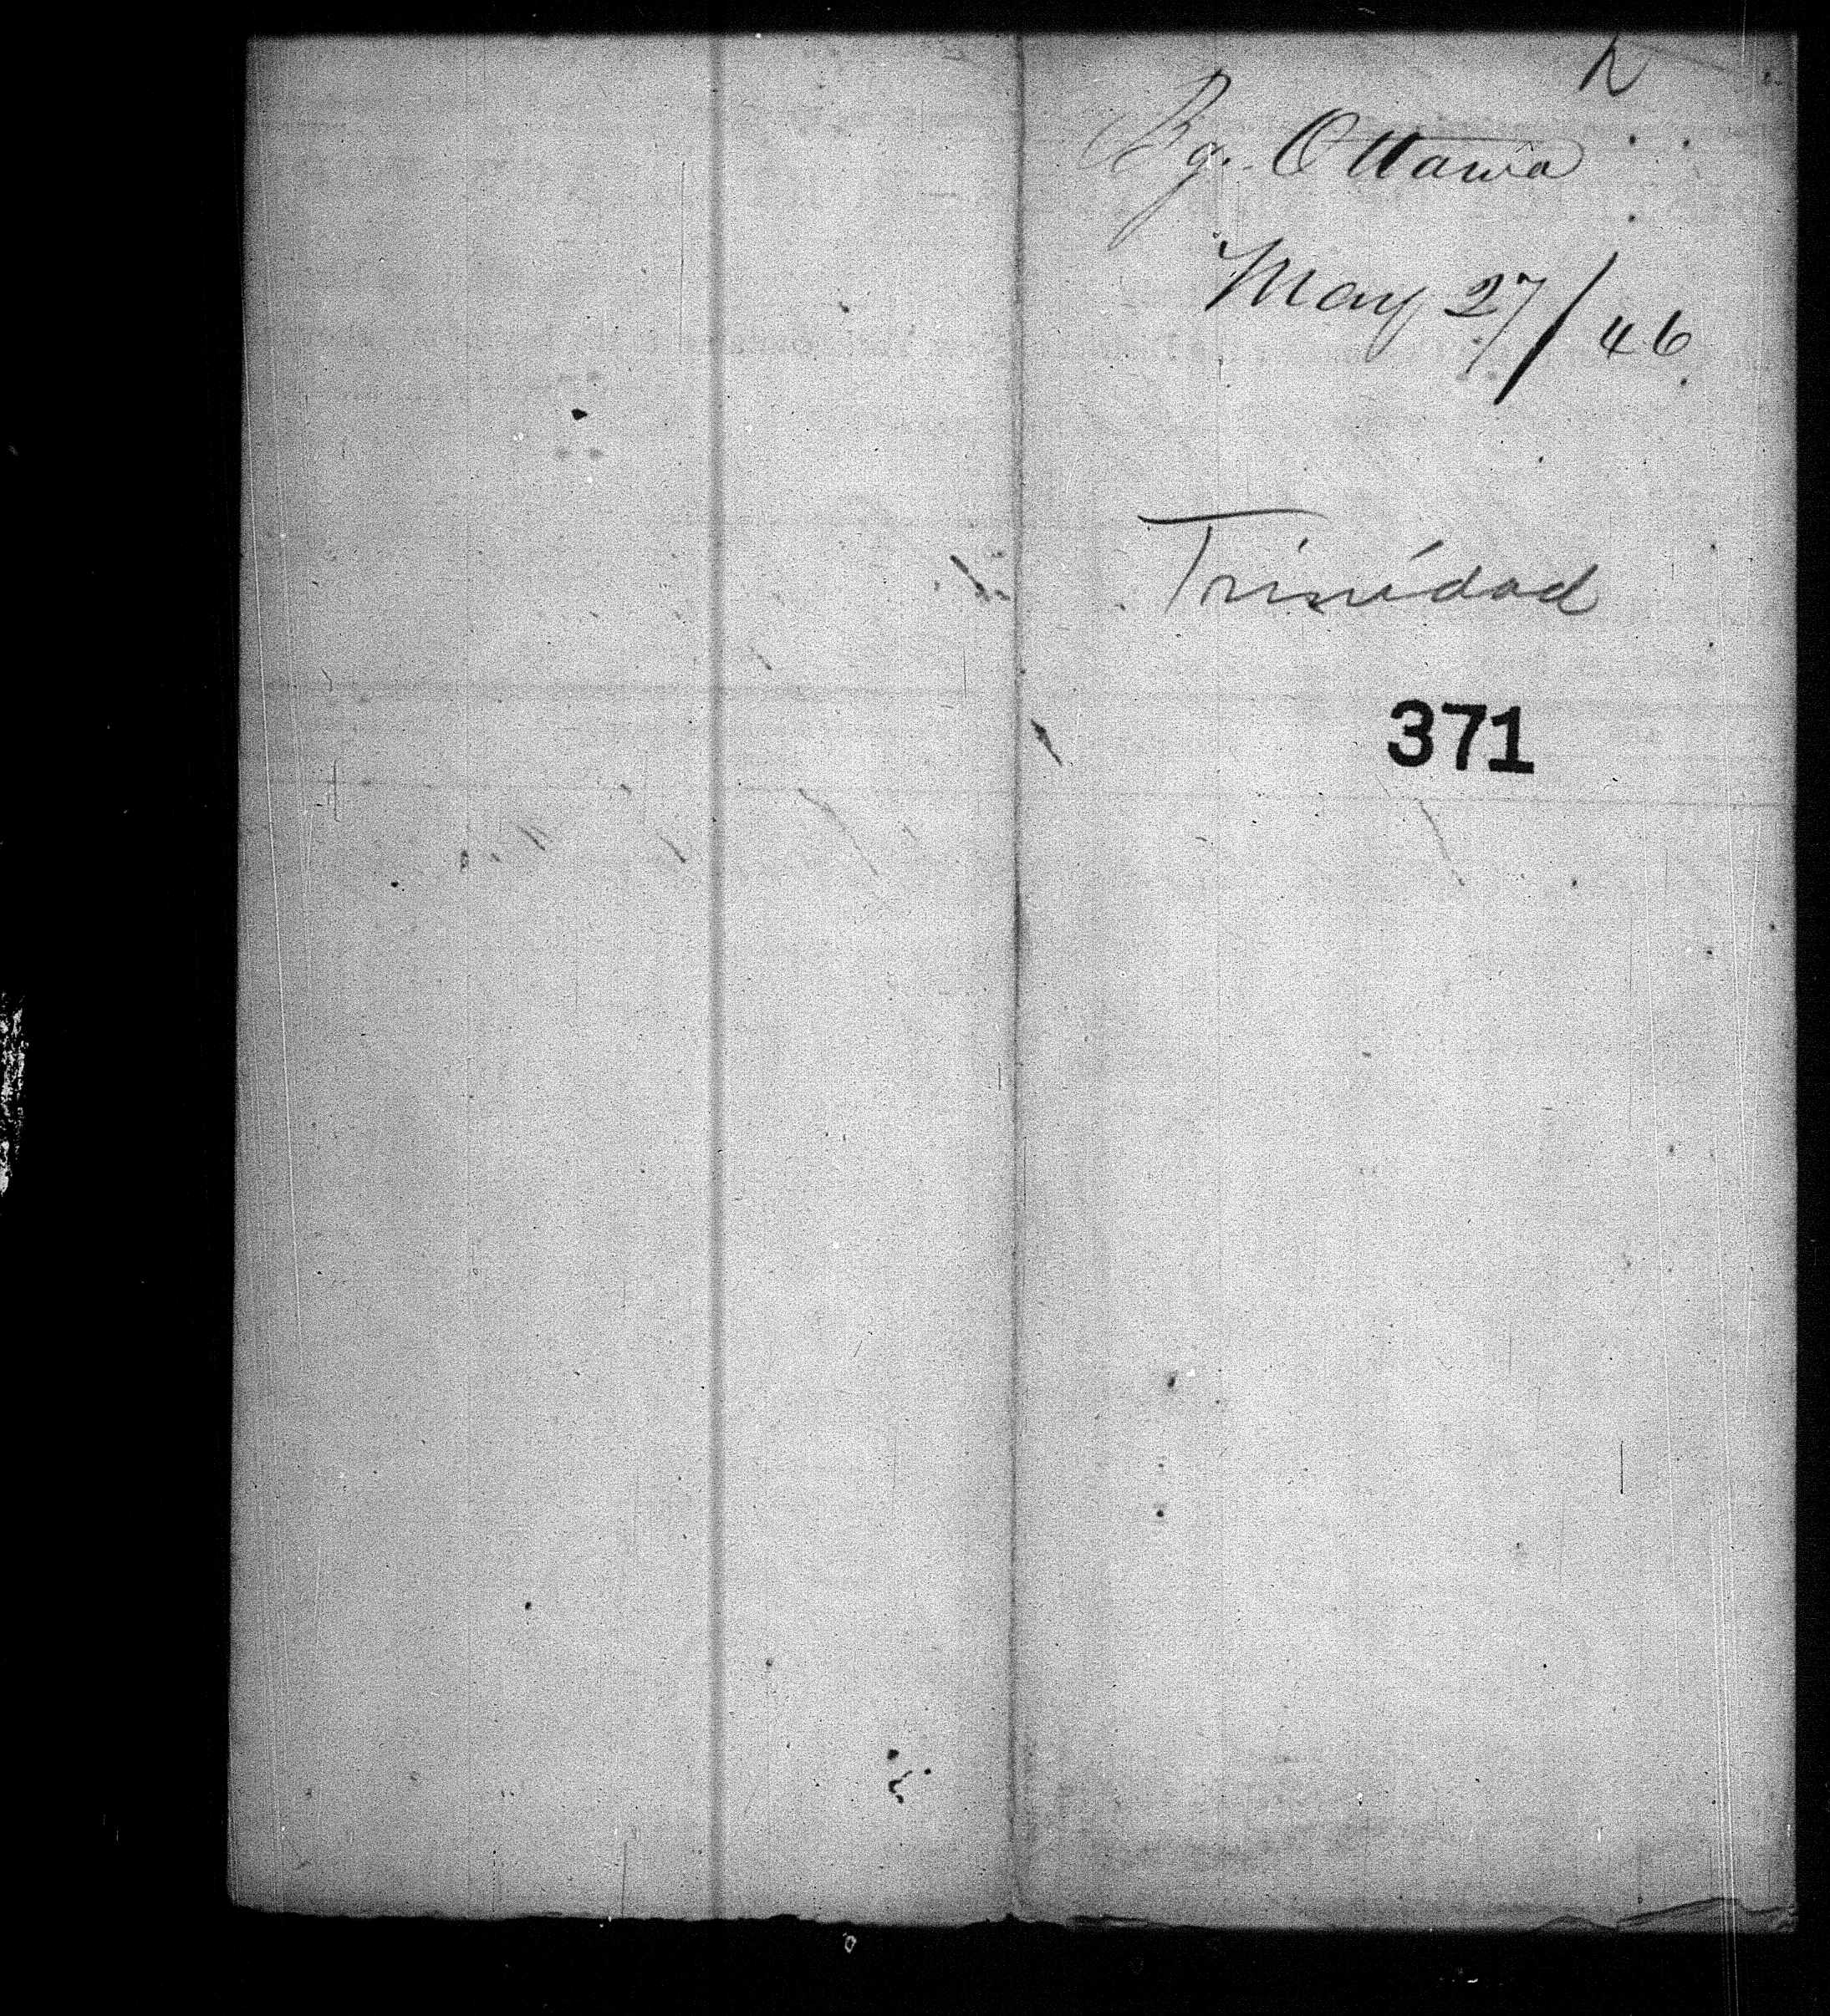 Bg. Ottawa
May 27/46
Trinidad
371